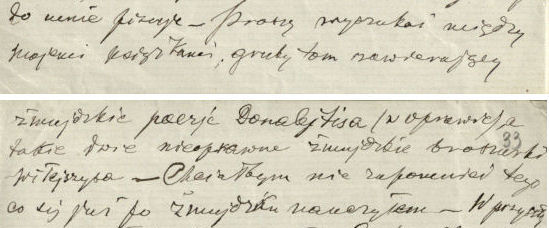 do mnie pisuje – Proszę wyszukać między
mojemi książkami, gruby tom zawierający
żmujdzkie poezje Donalejtisa (w oprawie) a
takie dwie nieoprawne żmujdzkie broszurki
33
Wilejszysa – Chciałbym nie zapomnieć tego
co się już po żmujdzku nauczyłem – W przyszły